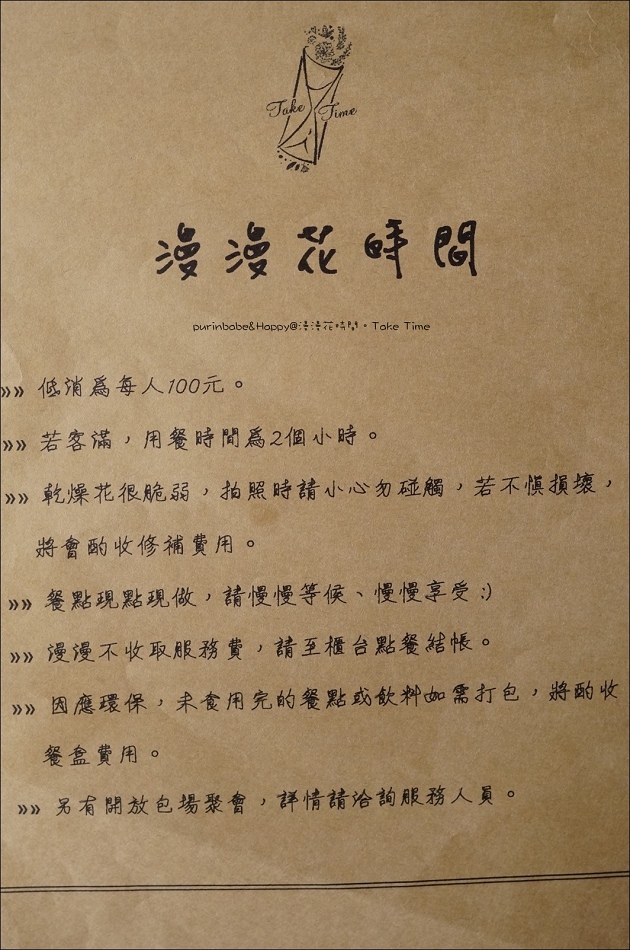 Take Time
漫漫花時間
purinbabe&Happy@漫漫花時間。Take Time
»» 低消爲每人100元。
»» 若客滿，用餐時間爲2個小時。
»» 乾燥花很脆弱，拍照時請小心勿碰觸，若不慎損壞，
將會酌收修補費用。
»» 餐點現點現做，請慢慢等候、慢慢享受:)
»» 漫漫不收取服務費，請至櫃台點餐結帳。
»» 因應環保，未食用完的餐點或飲料如需打包，將酌收
餐盒費用。
»» 另有開放包場聚會，詳情請洽詢服務人員。